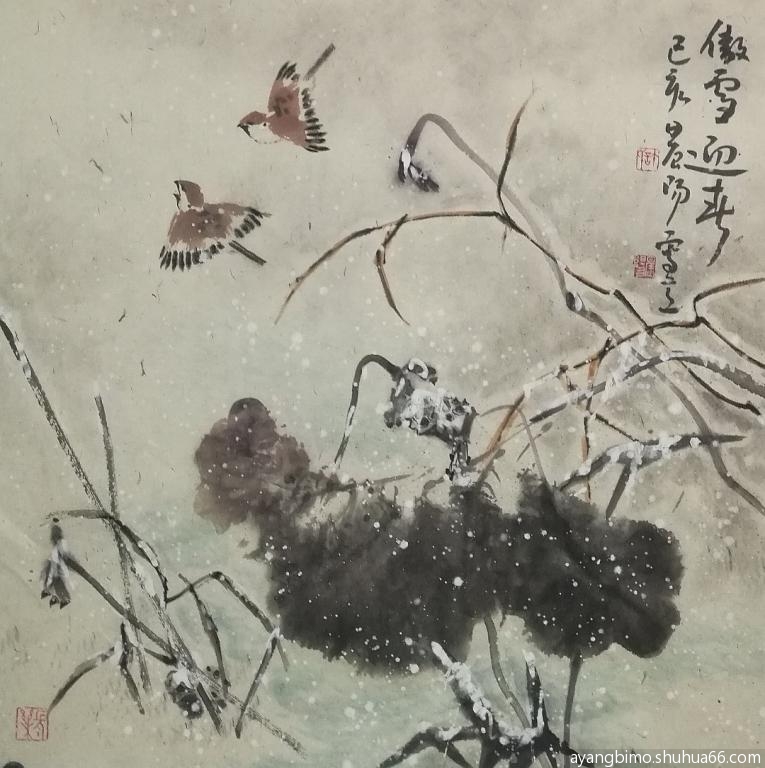 傲雪迎春
己亥晨阳雪立
ayangbimo.shuhua66.com